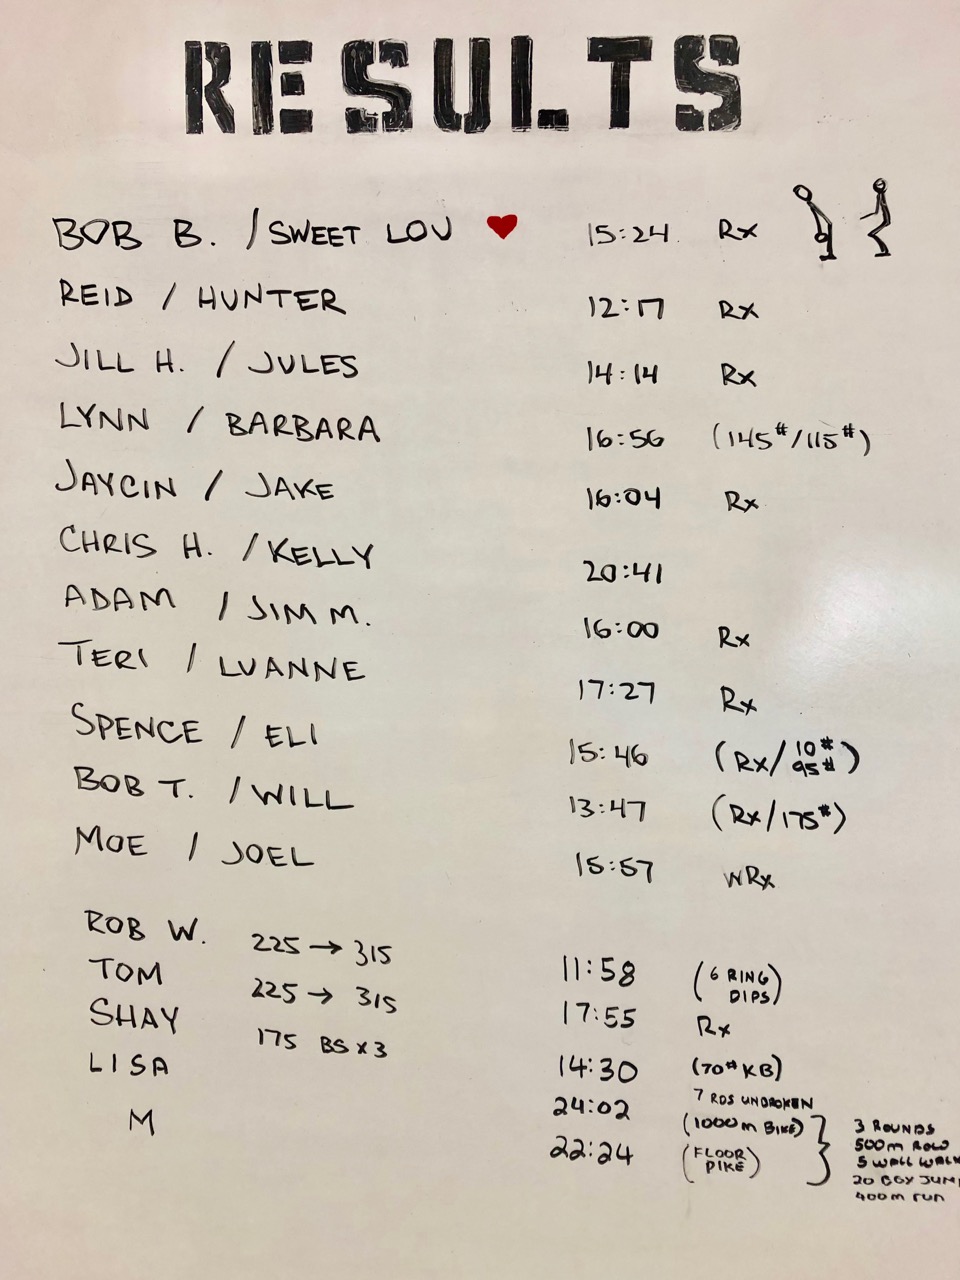 RESULTS
BOB B. / SWEET LOU ♥ 15:24 Rx
REID / HUNTER 12:17 Rx
JILL H. / JULES 14:14 Rx
LYNN / BARBARA 16:56 (145#/115#)
JAYCIN / JAKE 16:04 Rx
CHRIS H. / KELLY 20:41
ADAM / JIM M. 16:00 Rx
TERI / LUANNE 17:27 Rx
SPENCE / ELI 15:46 (Rx/10# 95#)
BOB T. / WILL 13:47 (Rx/175#)
MOE / JOEL 15:57 WRx
ROB W. 225 → 315 11:58 (6 RING DIPS)
TOM 225 → 315 17:55 Rx
SHAY 175 BS x 3 14:30 (70# KB)
7 RDS UNBROKEN
LISA 24:02 (1000m BIKE)
M 22:24 (FLOOR PIKE)
3 ROUNDS
500m ROW
5 WALL WALK
20 BOX JUM
400m run